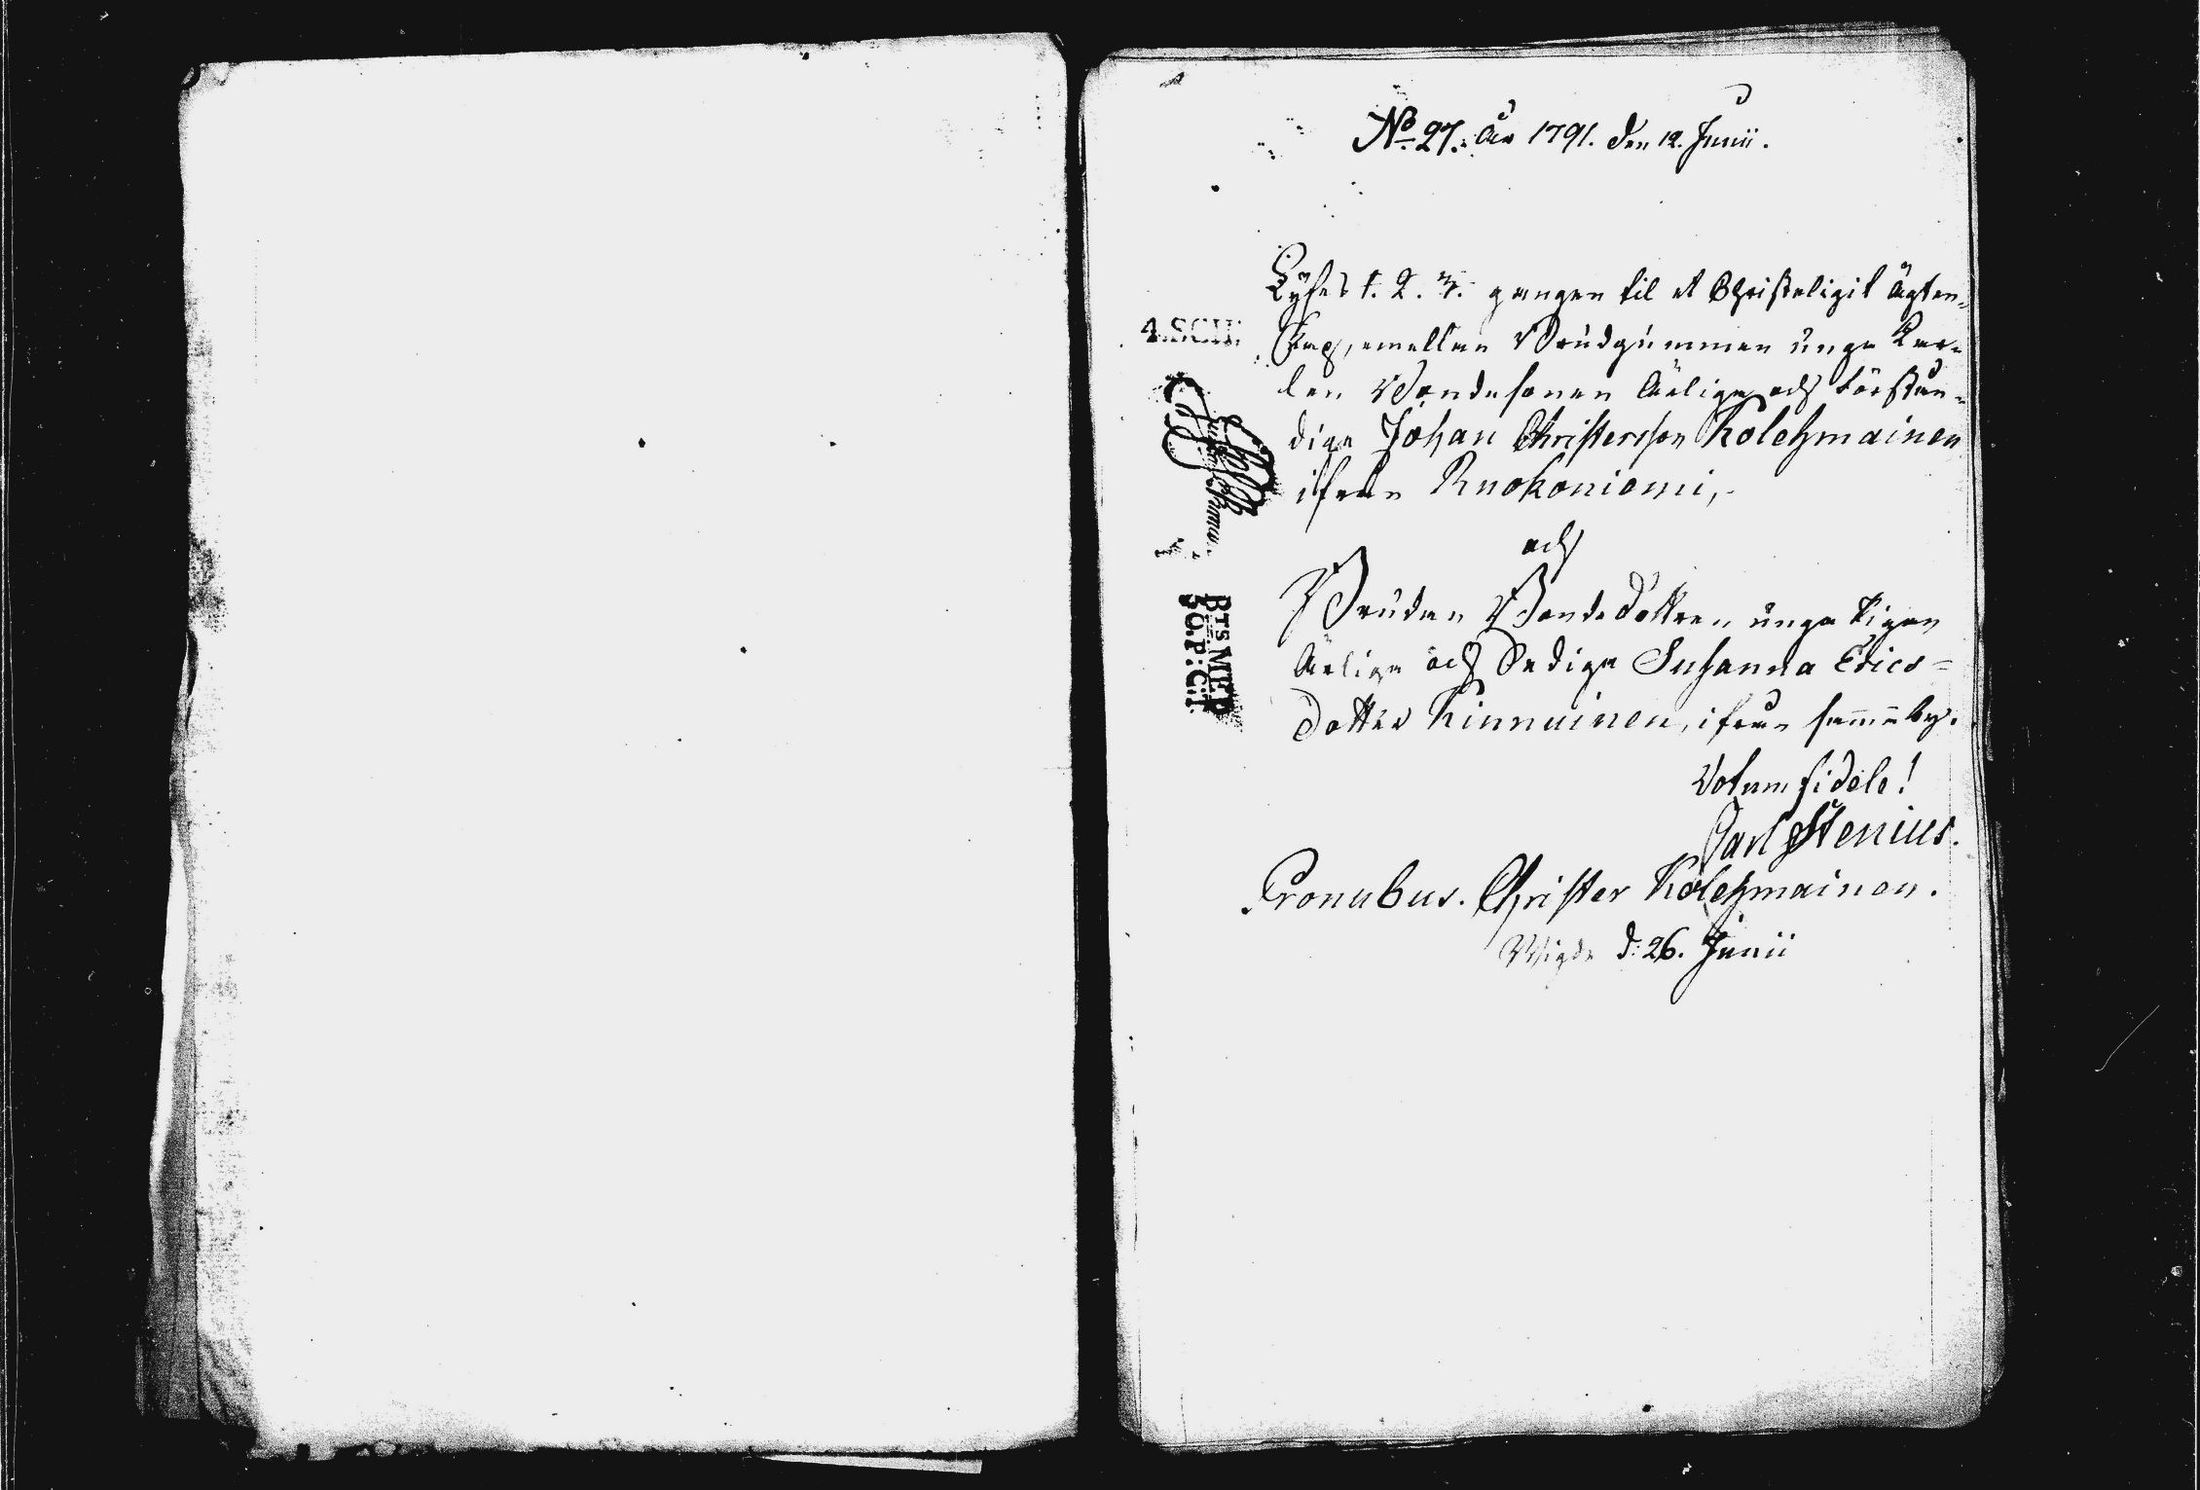 No 27. År 1791. den 12. Junii.
Lyses 1. 2. 3. gången til et Christeligit Ägten-
skap, emellan Brudgummen unga Kar-
len Bondesonen Ärlige och Förstån-
dige Johan Christersson Kolehmainen
ifrån Ruokoniemi,
och
Bruden Bondedottren unga Pigan
Ärliga och Sediga Susanna Erics=
dotter Kinnuinen, ifrån samma by.
Votum fidele!
Carl Stenius.
Pronubus. Christer Kolehmainen.
Wigde d. 26. Junii
4.SCH:
BTS MED
S O.P:C:T.